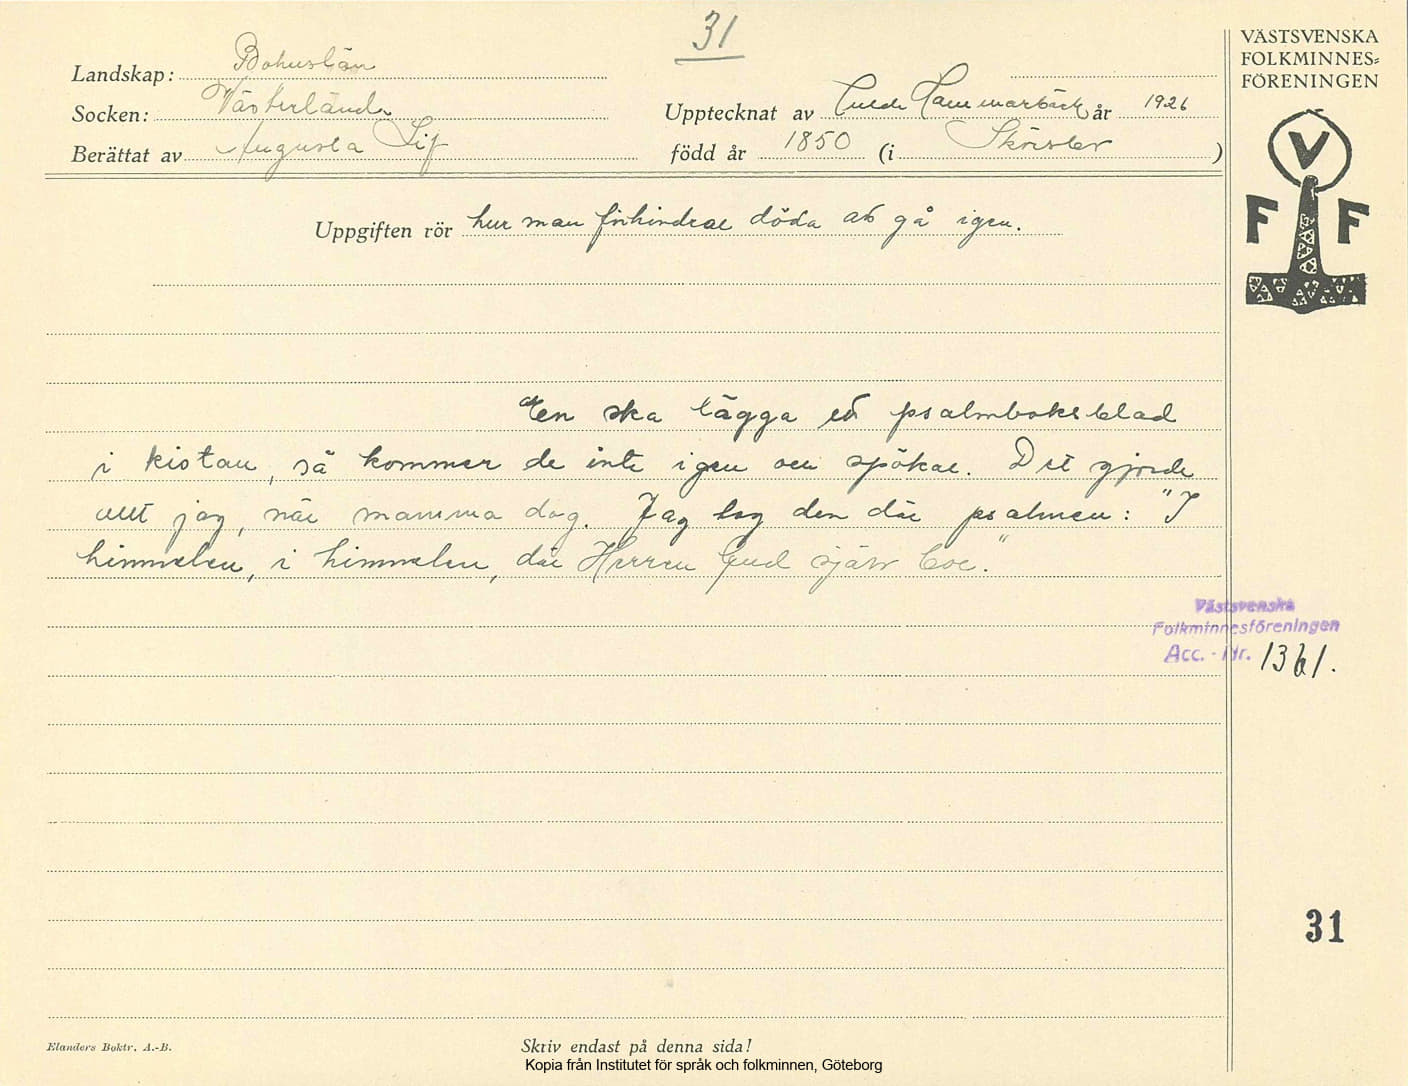 31
VÄSTSVENSKA
FOLKMINNES=
FÖRENINGEN
Landskap: Bohuslän
Socken: Västerlanda
Upptecknat av Hammarbäck år 1926
Berättat av Augusta Lif
född år 1850 (i )
V
F F
Uppgiften rör hur man förhindrar döda att gå igen.
En ska lägga ett psalmboksblad
i kistan, så kommer de inte igen och spökar. Det gjorde
allt jag, när mamma dog. Jag tog den där psalmen: "I
himmelen, i himmelen, där Herren Gud själv bor."
Västsvenska
Folkminnesföreningen
Acc. - Nr. 1361.
31
Elanders Boktr. A.-B.
Skriv endast på denna sida!
Kopia från Institutet för språk och folkminnen, Göteborg